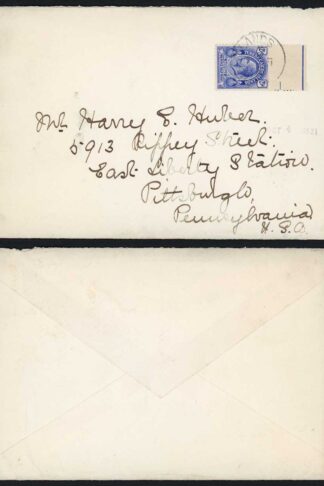 Mr. Harry E. Huber.
5913 Rippey Street.
East Liberty Station.
Pittsburgh,
Pennsylvania
U.S.A.